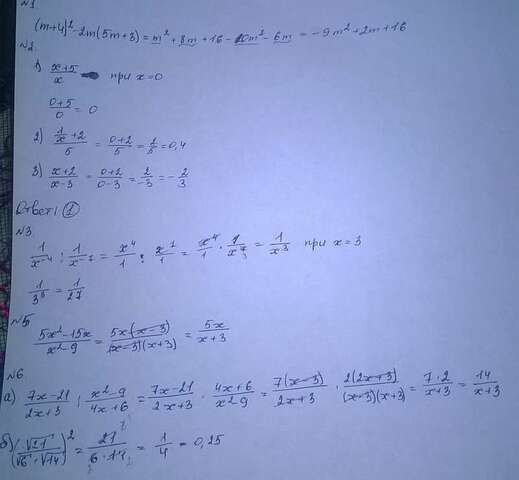 №1
(m+4)² - 2m(5m+3) = m² + 8m + 16 - 10m² - 6m = -9m² + 2m + 16
№2
1) (x+5)/x при x=0
(0+5)/0 = 0
2) (1/x + 2)/5 = (0+2)/5 = 1/5 = 0,4
3) (x+2)/(x-3) = (0+2)/(0-3) = 2/-3 = -2/3
Ответ: 1
№3
1/x⁻⁴ : 1/x⁻⁷ = x⁴/1 : x⁷/1 = x⁴/1 · 1/x⁷ = 1/x³ при x=3
1/3³ = 1/27
№5
(5x²-15x)/(x²-9) = 5x(x-3)/((x-3)(x+3)) = 5x/(x+3)
№6
а) (7x-21)/(2x+3) : (x²-9)/(4x+6) = (7x-21)/(2x+3) · (4x+6)/(x²-9) = 7(x-3)/(2x+3) · 2(2x+3)/((x-3)(x+3)) = 7·2/(x+3) = 14/(x+3)
б) (√21/(√6·√14))² = 21/(6·14) = 1/4 = 0,25